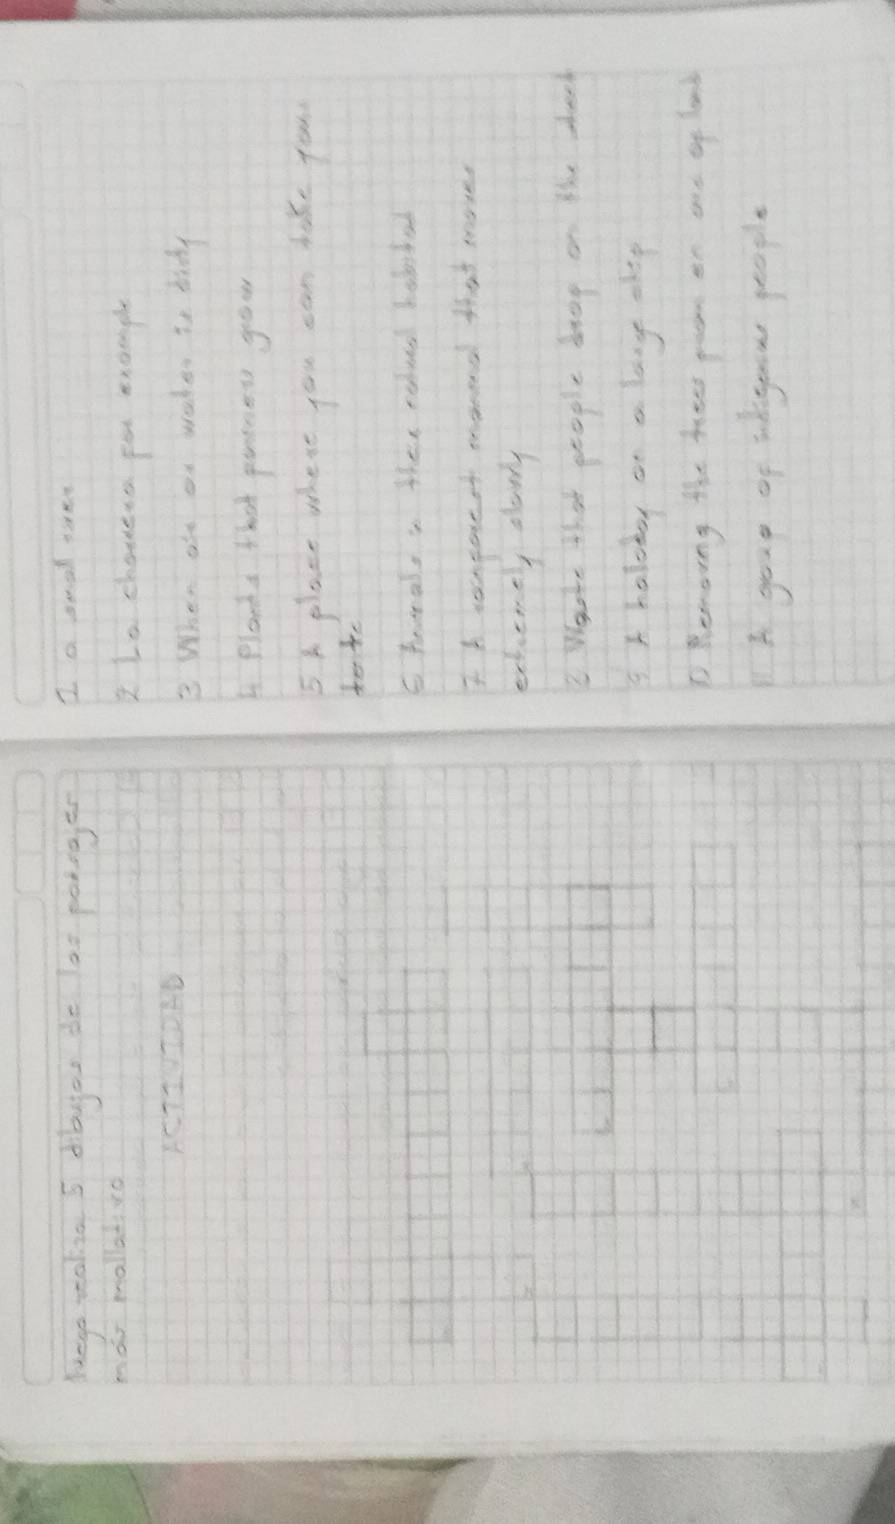 luego realiza 5 dibujos de los paisajes
más mallativo
ACTIVIDAD
1 a smal river
2 La chorrera for example
3 When air or water is dirty
4 Plants that farmers grow
5 A place where you can take your
tente
6 Animals in their natural habitat
7 A rainforest mammal that moves
extremely slowly
8 Waste that people drop on the
9 A holiday on a large ship
10 Removing the trees from an area of land
11 A group of indigenous people